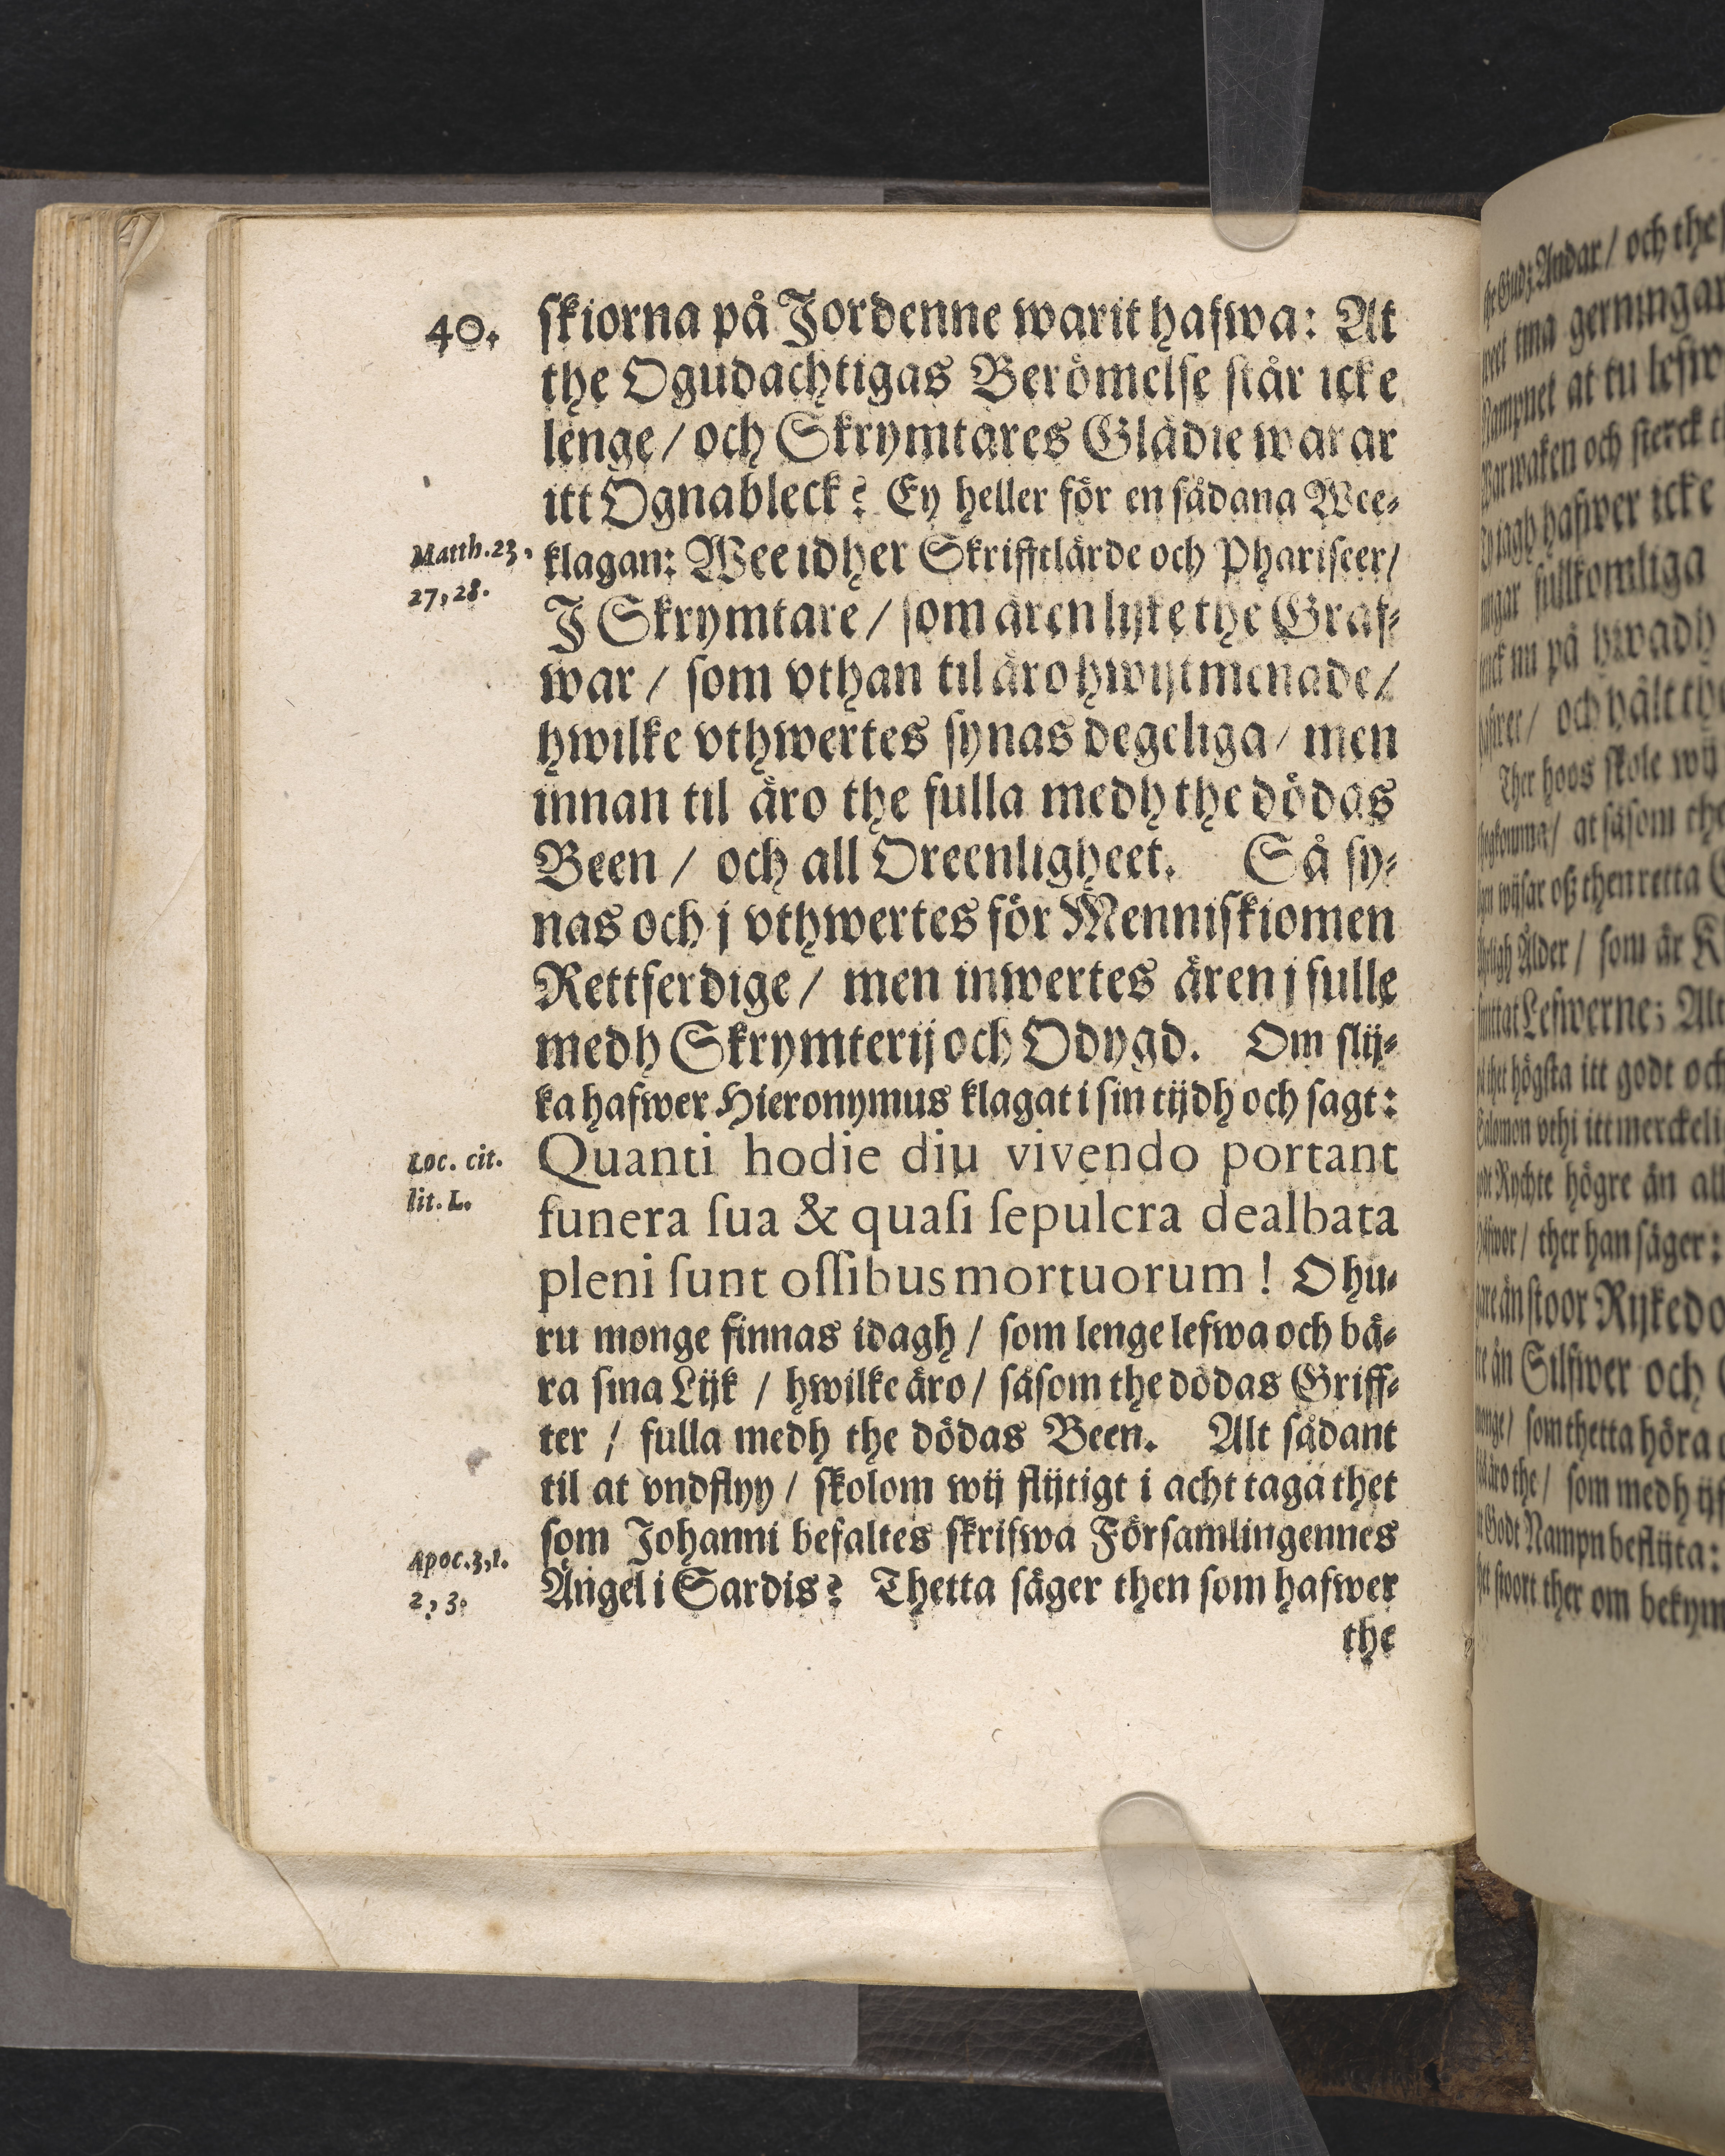 40.
skiorna på Jordenne warit hafwa: At
the Ogudachtigas Berömelse står icke
lenge / och Skrymtares Glädie warar
itt Ognableck? Ey heller för en sådana Wee-
Matth. 23,
27, 28.
klagan: Wee idher Skrifftlärde och Phariseer /
J Skrymtare / som ären lijke the Graf-
war / som vthan til äro hwijtmenade /
hwilke vthwertes synas degeliga / men
innan til äro the fulla medh the dödas
Been / och all Oreenligheet. Så sy-
nas och j vthwertes för Menniskiomen
Rettferdige / men inwertes ären j fulle
medh Skrymterij och Odygd. Om slij-
ka hafwer Hieronymus klagat i sin tijdh och sagt:
Loc. cit.
lit. L.
Quanti hodie diu vivendo portant
funera sua & quasi sepulcra dealbata
pleni sunt ossibus mortuorum! O hu-
ru monge finnas idagh / som lenge lefwa och bä-
ra sina Lijk / hwilke äro / såsom the dödas Griff-
ter / fulla medh the dödas Been. Alt sådant
til at vndflyy / skolom wij flijtigt i acht taga thet
som Johanni befaltes skrifwa Församlingennes
Apoc. 3, 1.
2, 3.
Ängel i Sardis? Thetta säger then som hafwer
the
Gudz Andar / och the
tina gerningar
Nampnet at tu lefw
War waken och sterck
jagh hafwer icke
fullkomliga
nu på hwadh
och hålt
Ther hoos skole wij
at såsom the
wijsar oß then retta
Ålder / som är
Lefwerne; Alt
thet högsta itt godt och
Salomon vthi itt merckeli
Rychte högre än all
ther han säger:
än stoor Rijkedo
än Silfwer och
som thetta höra
äro the / som medh
Godt Nampn beflijta:
stoort ther om bekym